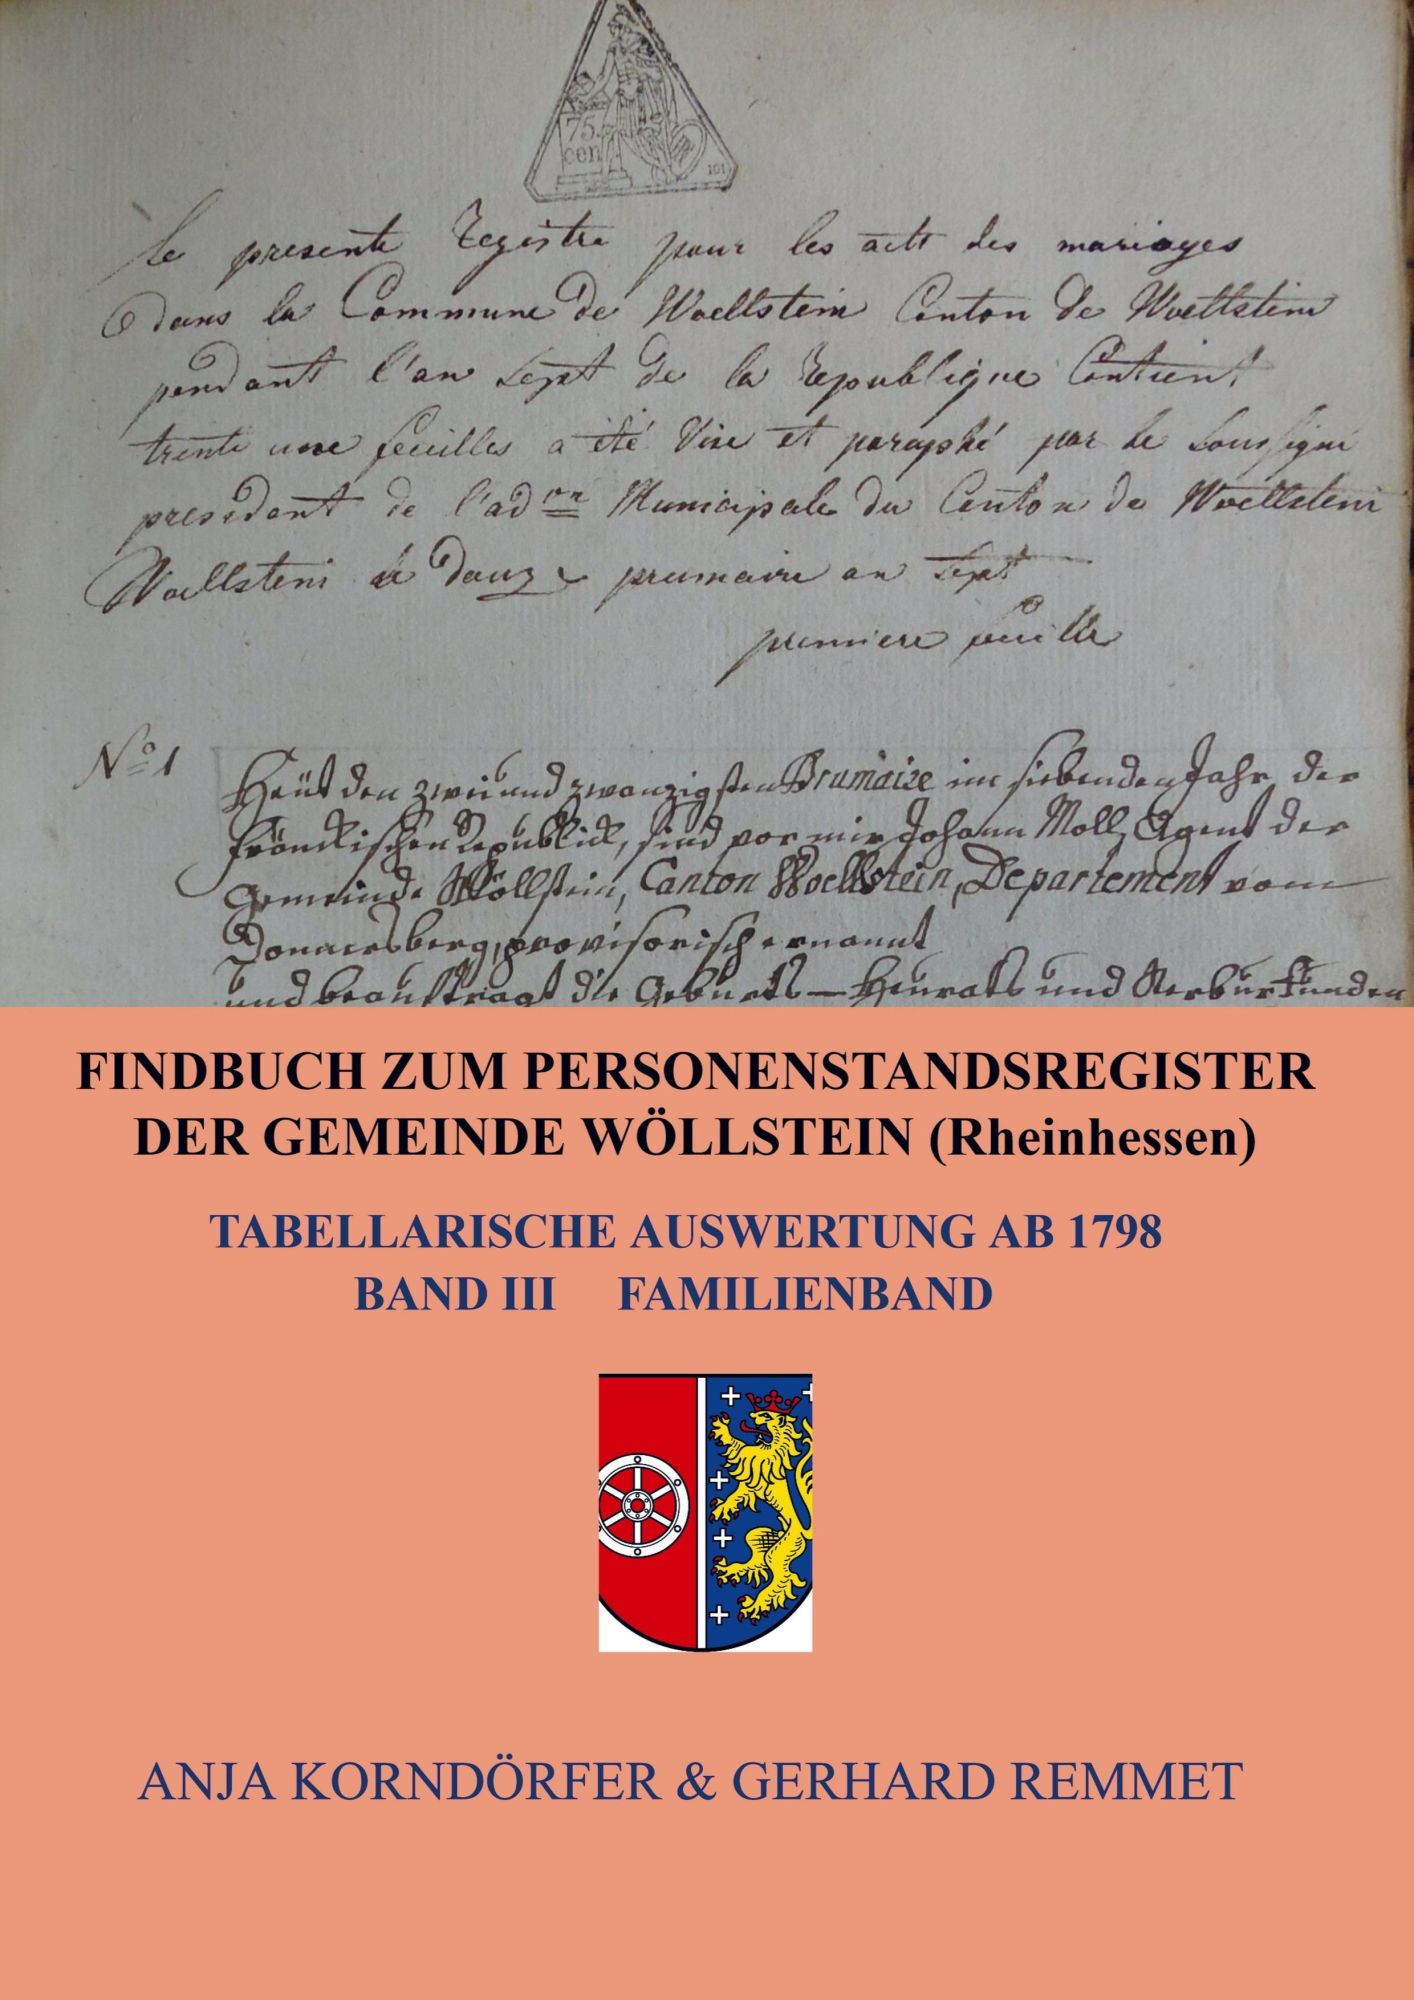 75.
cen
101
le presente Registre pour les acts des mariages
dans la Commune de Woellstein Canton de Woellstein
pendant l'an Sept de la Republique Contient
trente une feuilles a été Vise et paraphé par le Soussigné
president de l'adon Municipale du Canton de Woellstein
Woellstein le douze prumaire an Sept
premiere feuille
No 1
Heüt den zwei und zwanzigsten Brumaire im siebenden Jahr der
Fränckischen Republick, sind vor mir Johann Moll, Agent der
Gemeinde Wöllstein, Canton Woellstein, Departement vom
Donnersberg, provisorisch ernannt
und beauftragt die Geburts- Heurats und Sterburkunden
FINDBUCH ZUM PERSONENSTANDSREGISTER
DER GEMEINDE WÖLLSTEIN (Rheinhessen)
TABELLARISCHE AUSWERTUNG AB 1798
BAND III FAMILIENBAND
ANJA KORNDÖRFER & GERHARD REMMET